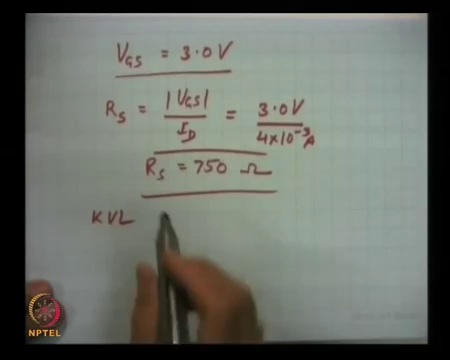 V_GS = 3.0V
R_S = |V_GS| / I_D = 3.0V / 4×10^-3 A
R_S = 750 Ω
KVL
NPTEL